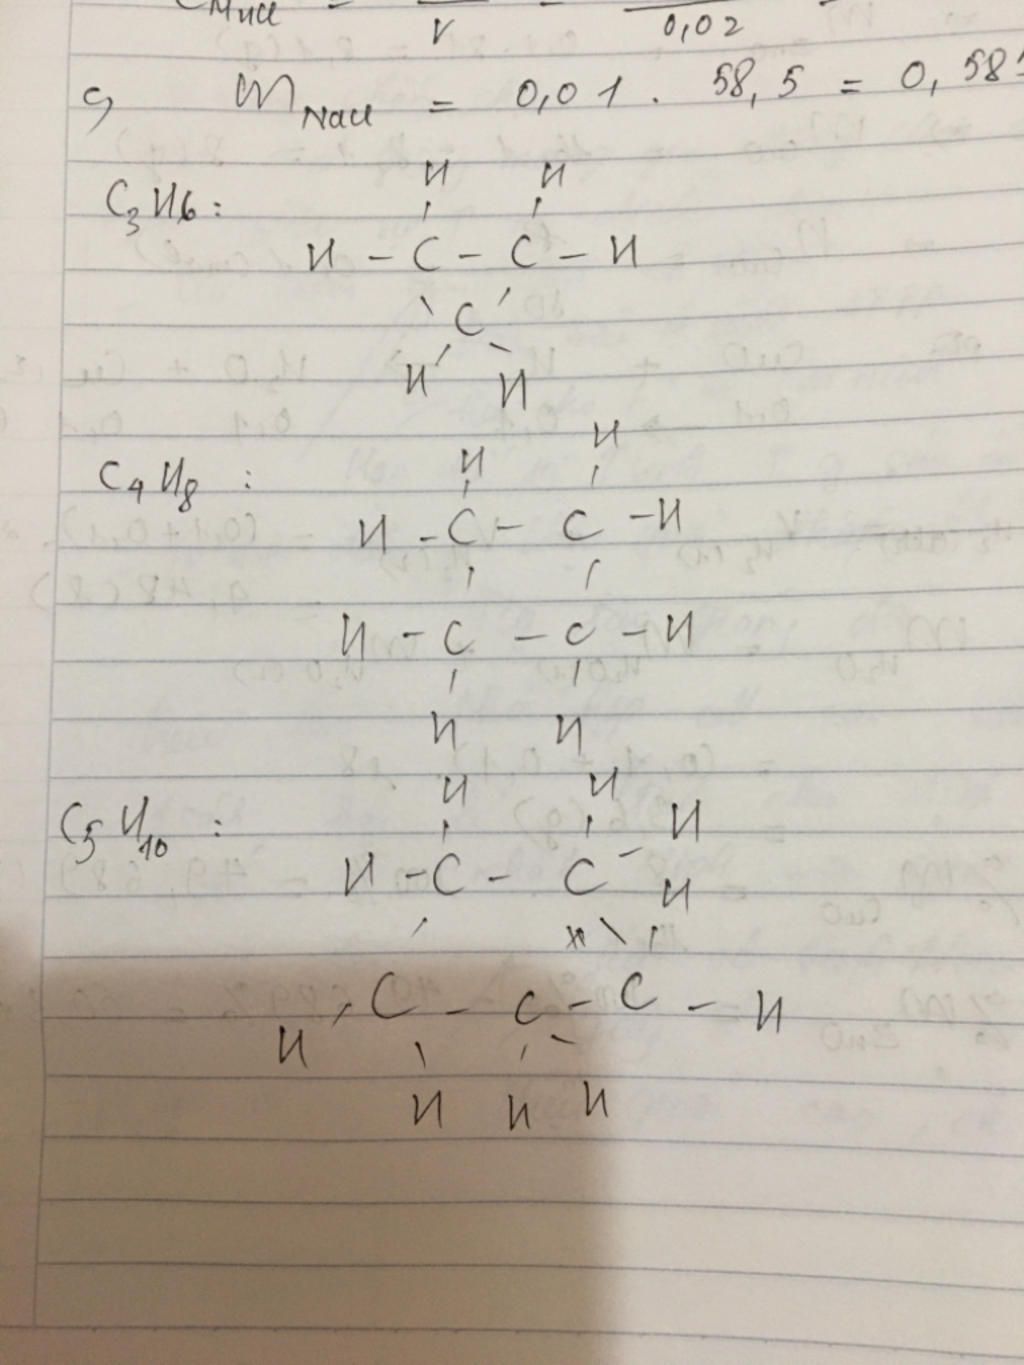 C MNaCl = — = — =
V 0,02
c, m NaCl = 0,01 . 58,5 = 0,585
H H
C3H6 :
H - C - C - H
C
H H
H
C4H8 : H
H - C - C - H
H - C - C - H
H H
H H
C5H10 : H
H - C - C H
C - C - C - H
H
H H H